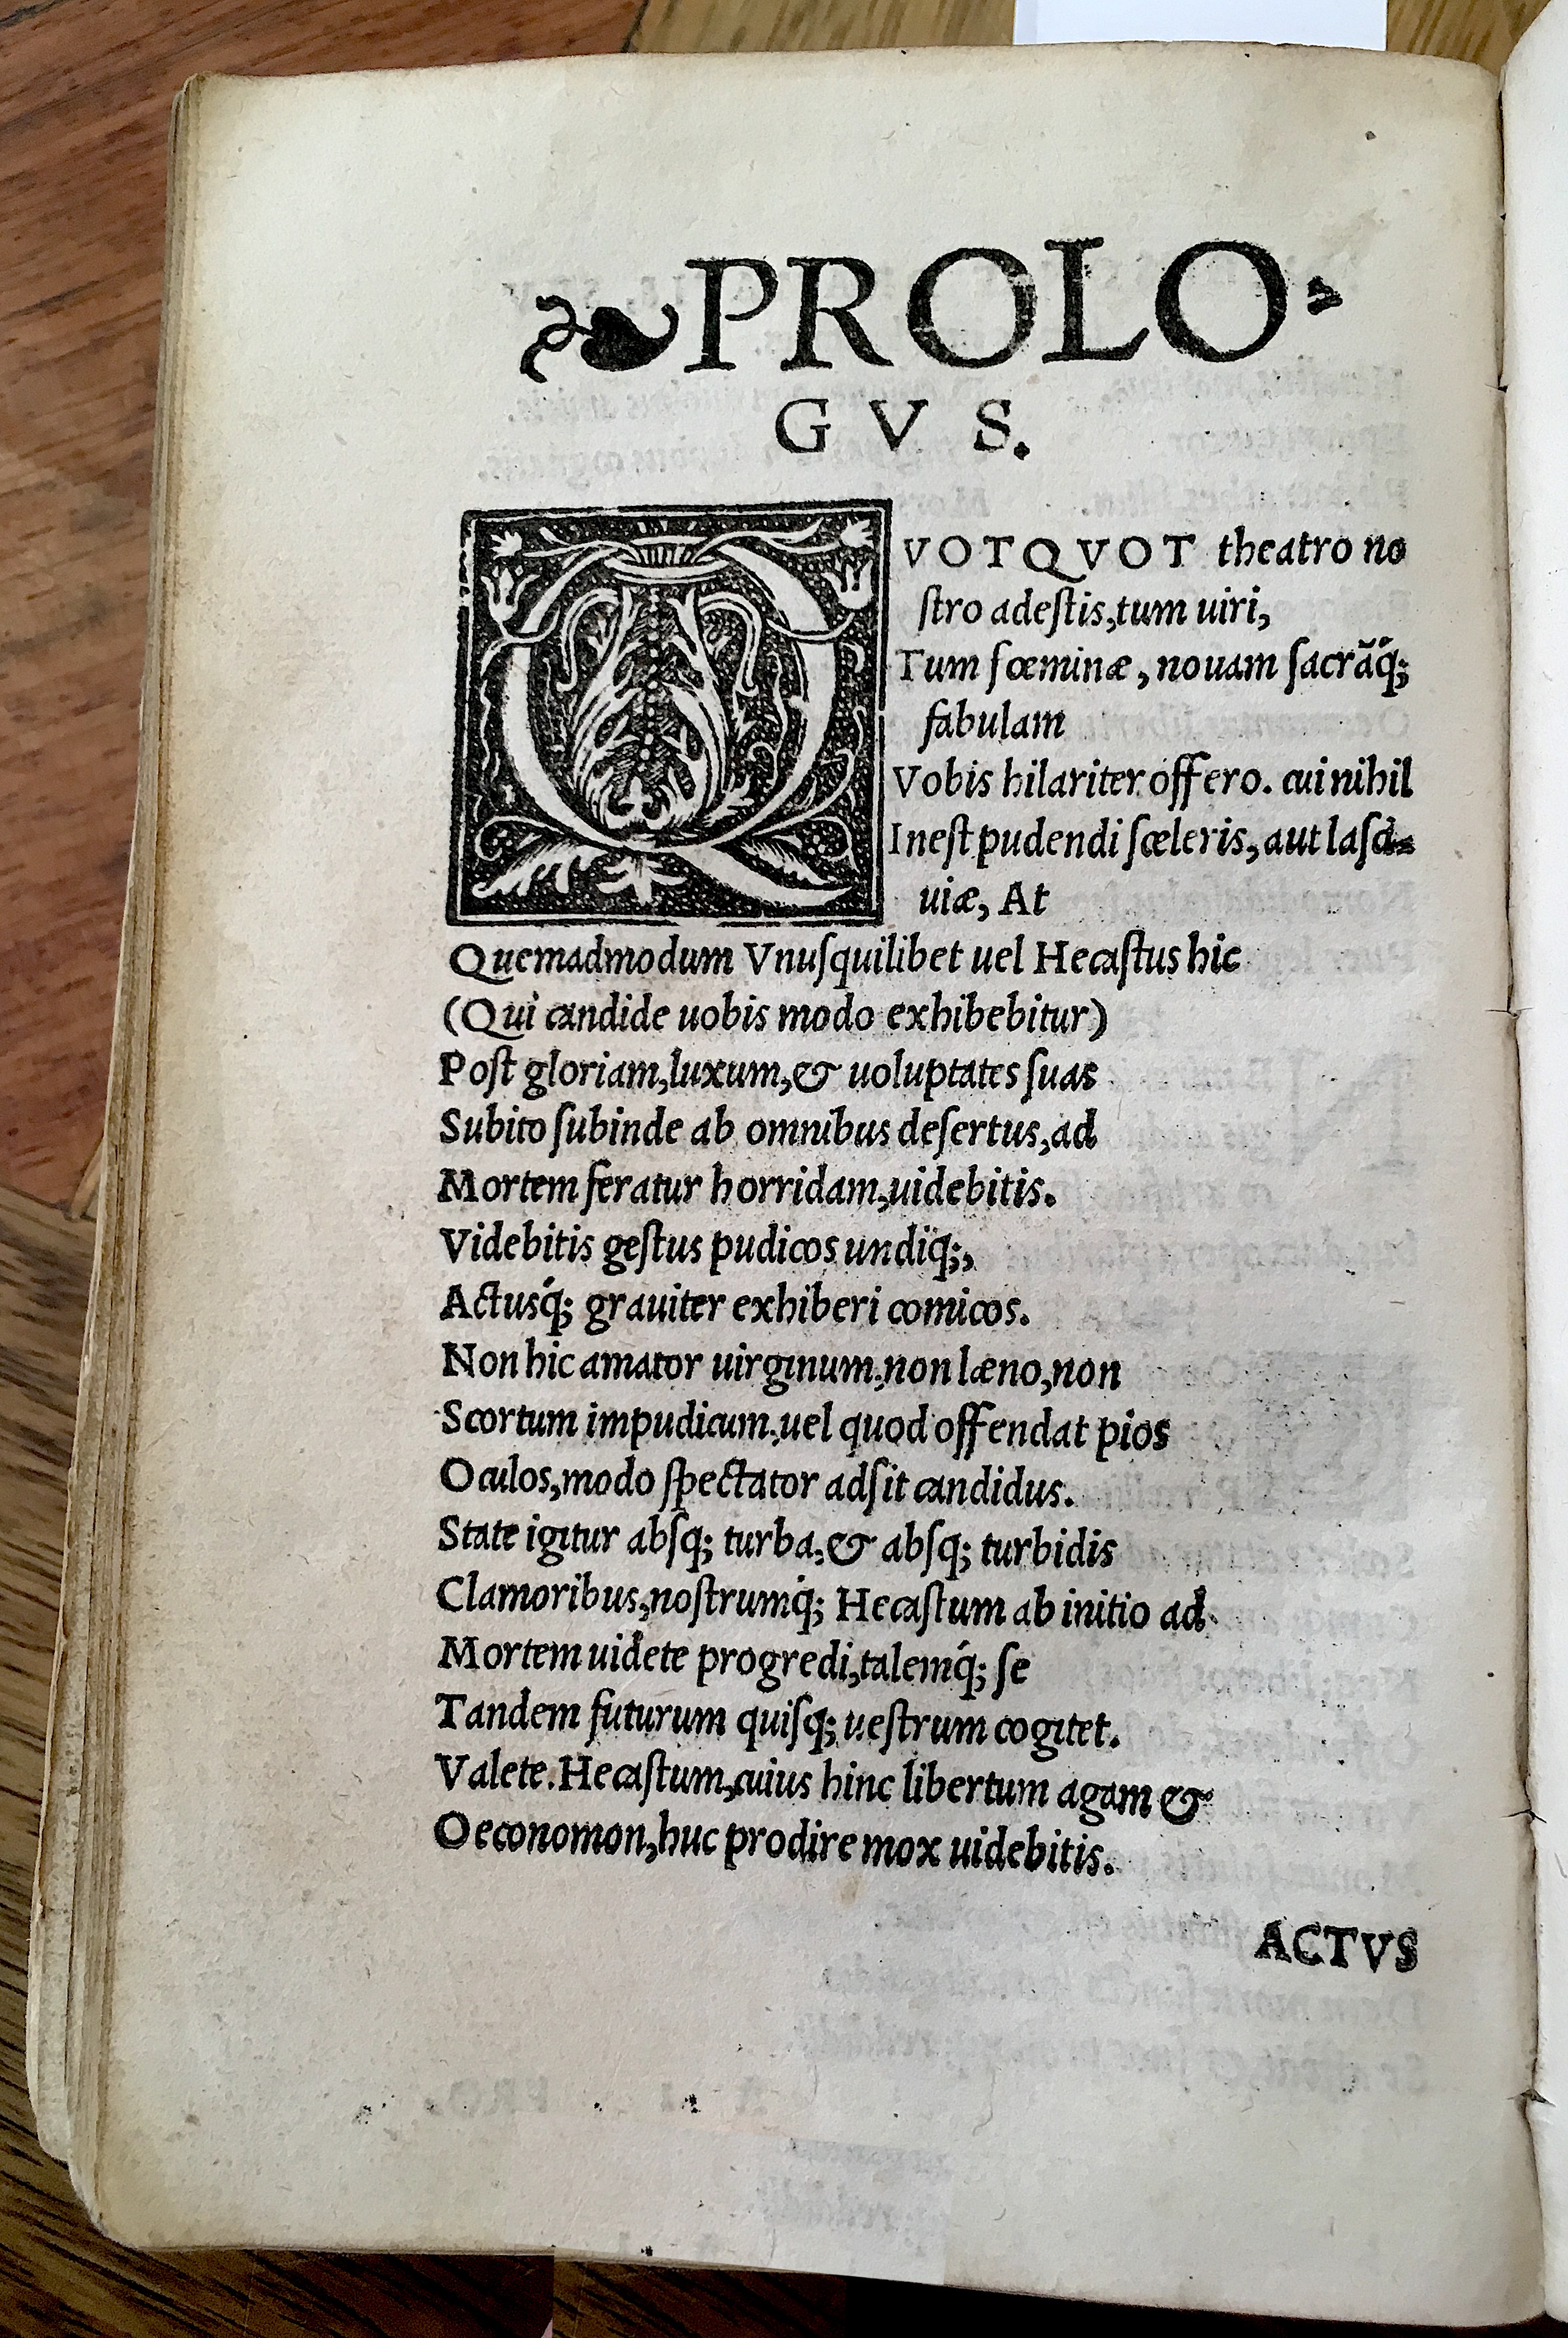 ❧PROLO-
GVS.
QVOTQVOT theatro no
ſtro adeſtis, tum uiri,
Tum fœminæ, nouam ſacrãq́;
fabulam
Vobis hilariter offero. cui nihil
Ineſt pudendi ſceleris, aut laſci-
uiæ, At
Quemadmodum Vnuſquilibet uel Hecaſtus hic
(Qui candide uobis modo exhibebitur)
Poſt gloriam, luxum, & uoluptates ſuas
Subito ſubinde ab omnibus deſertus, ad
Mortem feratur horridam, uidebitis.
Videbitis geſtus pudicos undiq̃;,
Actusq́; grauiter exhiberi comicos.
Non hic amator uirginum, non læno, non
Scortum impudicum, uel quod offendat pios
Oculos, modo ſpectator adſit candidus.
State igitur abſq; turba, & abſq; turbidis
Clamoribus, noſtrumq́; Hecaſtum ab initio ad
Mortem uidete progredi, talemq́; ſe
Tandem futurum quiſq; ueſtrum cogitet.
Valete. Hecaſtum, cuius hinc libertum agam &
Oeconomon, huc prodire mox uidebitis.
ACTVS